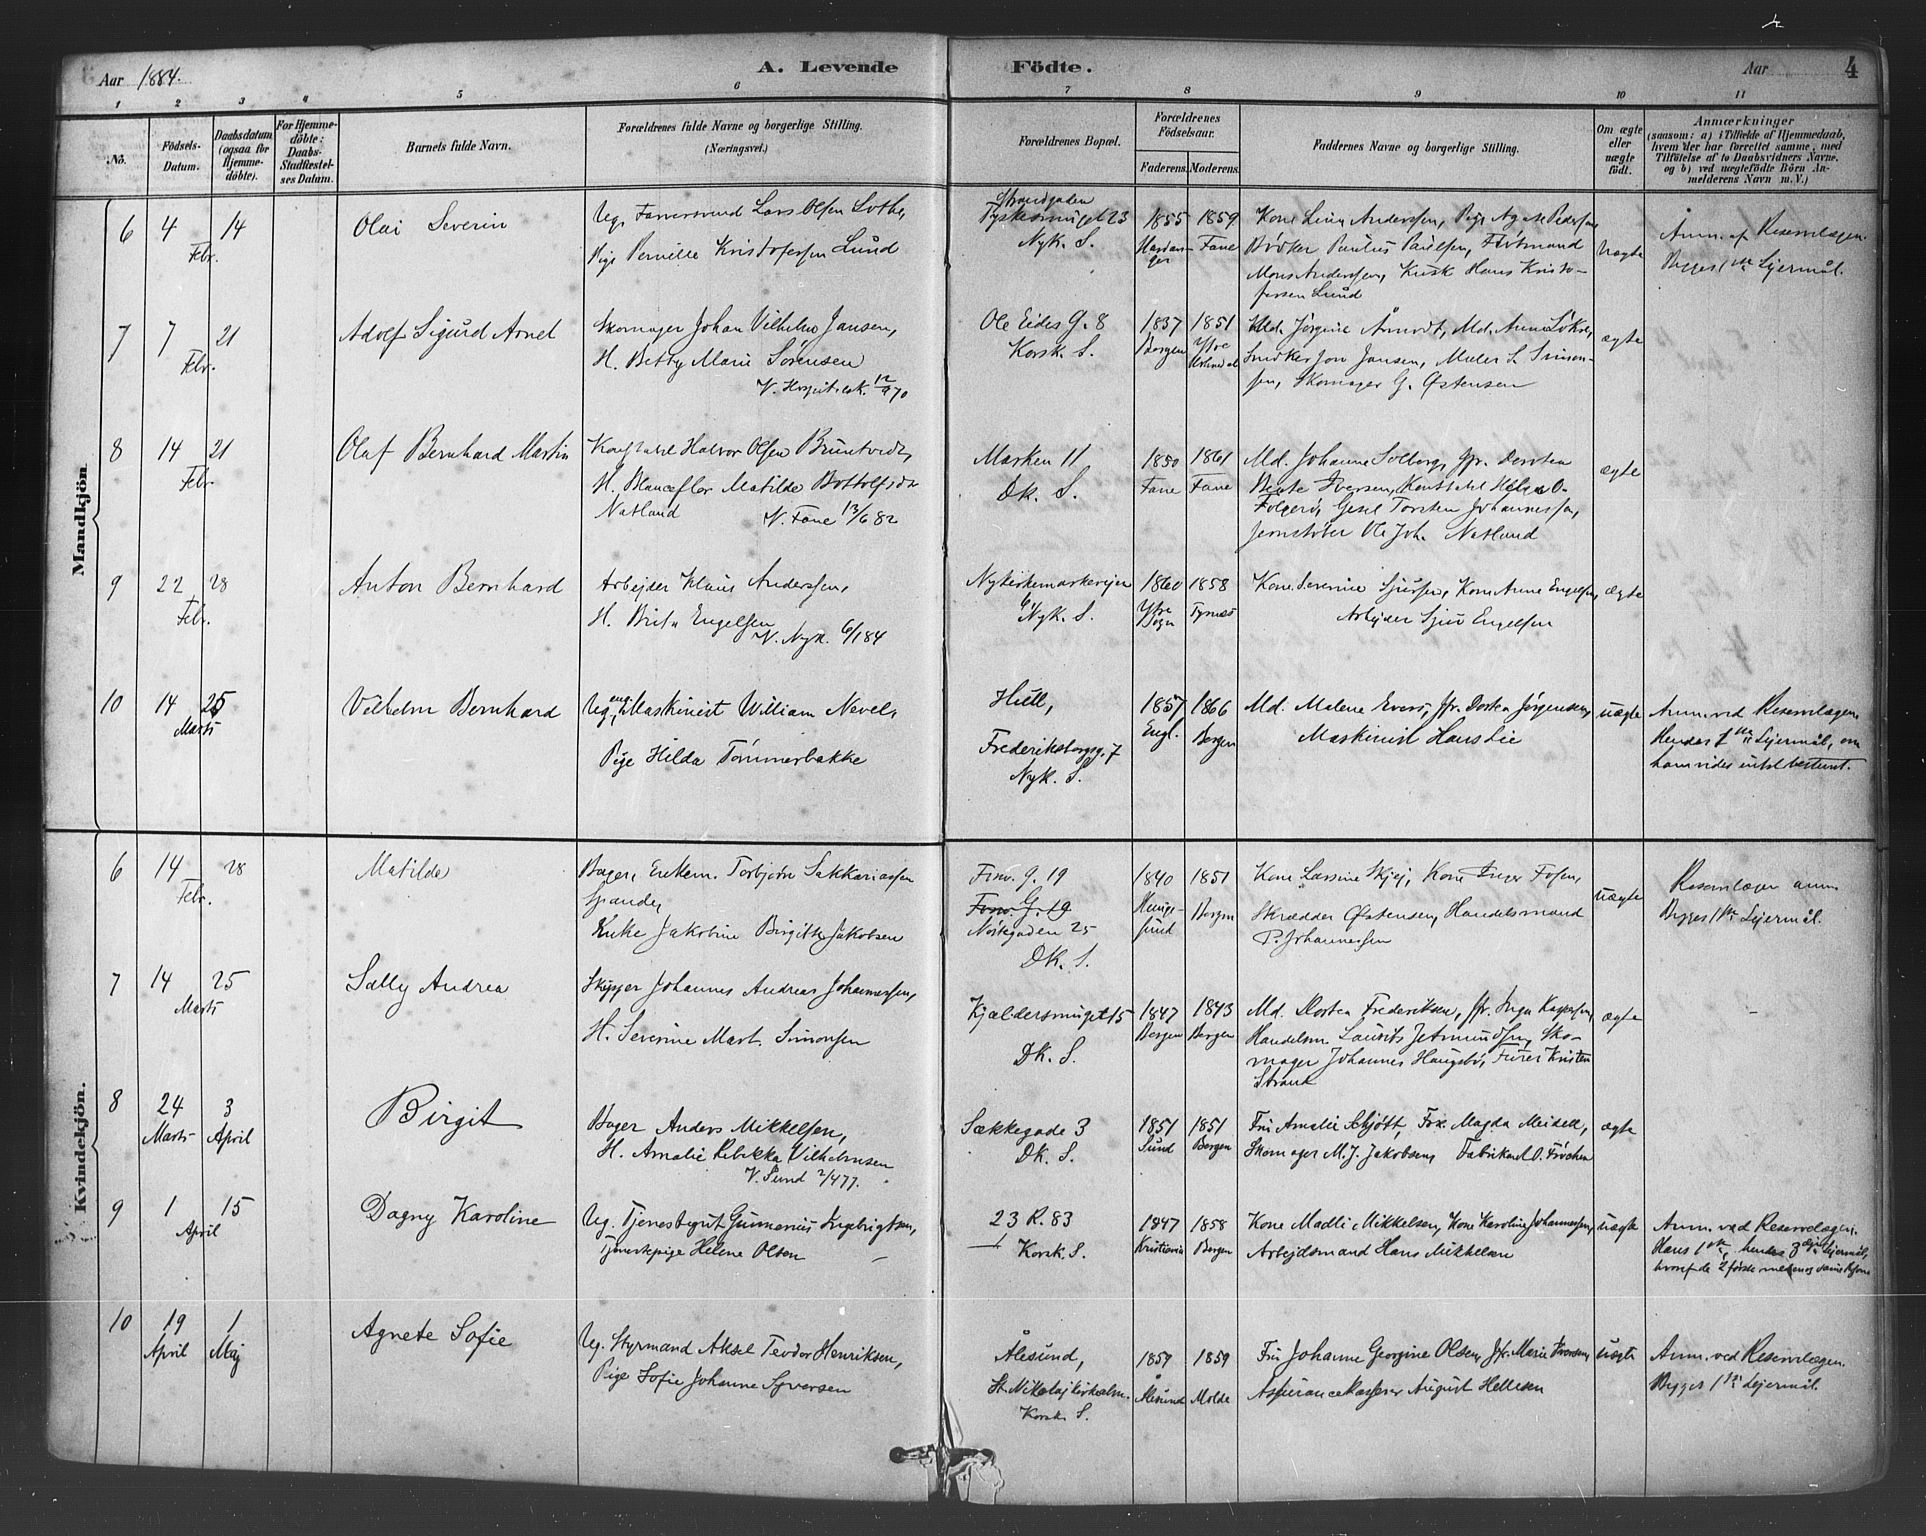 Aar 1884.
A. Levende Födte.
Aar
4
1 2 3 4 5 6 7 8 9 10 11
No.
Födsels-
Datum.
Daabsdatum
(ogsaa for
Hjemme-
döbte).
For Hjemme-
döbte:
Daabs-
Stadfæstel-
ses Datum.
Barnets fulde Navn.
Forældrenes fulde Navne og borgerlige Stilling.
(Næringsvei.)
Forældrenes Bopæl.
Forældrenes
Födselsaar.
Faderens.
Moderens.
Faddernes Navne og borgerlige Stilling.
Om ægte
eller
uægte
födt.
Anmærkninger
(saasom: a) i Tilfælde af Hjemmedaab,
hvem der har forrettet samme, med
Tilföielse af to Daabsvidners Navne,
og b) ved uægtefödte Börn An-
melderens Navn m. V.)
Mandkjön.
6
4
Febr.
14
Olai Severin
Ug. Lars Olsen
Pige Pernille Kristofersen Lund
Strandgaden
23
Nyk. S.
1855
1859
Fane
Kone Andersen, Pige Agate Pedersen,
Bødker Paulus Paulsen,
Mons Andersen, Kusk Hans Kristo-
fersen Lund
Uægte
Anm. af Reservelægen.
Begges 1ste Lejermål.
7
7
Febr.
21
Adolf Sigurd Arnet
Skomager Johan Vilhelm Jansen,
H. Betty Marie Sørensen
V. 12/9 70
Ole Eides G. 8
Korsk. S.
1837
Bergen
1851
Ytre
Md. Jørgine Md. Anna
Snedker Jansen, Maler S. Simon-
sen, Skomager G. Østensen
ægte
8
14
Febr
21
Olaf Bernhard Martin
Konstabel Halvor Olsen
H. Blanceflor Matilde
Natland V. Fane 13/6 82
Marken 11
DK. S.
1850
Fane
1861
Fane
Md. Johanne Solberg, Jfr. Dorotea
Beate Iversen, Konstabel
Torsten Johannessen,
Ole Joh. Natland
ægte
9
22
Febr.
28
Anton Bernhard
Arbejder Klaus Anderssen,
H. Brita Engelsen
V. Nyk. 6/1 84
Nykirkemarkevejen
6, Nyk. S.
1860
Ytre
1858
Tysnæs
Kone Severine Sjursen, Kone Anna Engelsen,
Arbejder Sjur Engelsen
ægte
10
14
Marts
25
Vilhelm Bernhard
Ug. eng. Maskinist William Nevel,
Pige Hilda Tømmerbakke
Hull,
Frederiksborgsg. 7
Nyk. S.
1857
Engl.
1866
Bergen
Md. Malene Evers, Jfr. Dortea Jørgensen,
Maskinist Hans Lie
uægte
Anm. ved Reservelægen.
Hendes 1ste Lejermål, om
ham vides intet bestemt.
Kvindekjön.
6
14
Febr.
28
Matilde
Bager, Enkem. Torbjørn Sakkariassen
Spande,
Enke Jakobine Birgitte Jakobsen
g. 19
G. 19
25
DK. S.
1840
1851
Bergen
Kone Lassine Skjej, Kone Inger Fosen,
Skrædder Østensen, Handelsmand
P. Johannessen
uægte
Reservelægen anm.
Begges 1ste Lejermål.
7
14
Marts
25
Sally Andrea
Skipper Johannes Andreas Johannessen,
H. Severine Mart. Simonsen
Kjældersmuget 15
DK. S.
1847
Bergen
1843
Bergen
Md. Dortea Frederiksen, Jfr. Inga Kaspersen,
Handelsm. Laurits Jetmundsen, Sko-
mager Johannes Haugsbø, Furer Kristen
Strand
ægte
8
24
Marts
3
April
Birgit
Bager Anders Mikkelsen,
H. Amalie Rebekka Vilhelmsen
V. Sund 2/4 77.
Sækkegade 3
DK. S.
1851
Sund
1851
Bergen
Fru Amalie Schjøtt, Frk. Magda Meidell,
Skomager M. J. Jakobsen, O. Frøchen
ægte
9
1
April
15
Dagny Karoline
Ug. Tjenestegut Gunnerius Ingebrigtsen,
Tjenestepige Helene Olsen
23 R. 83
1
Korsk. S.
1847
Kristiania
1858
Bergen
Kone Madli Mikkelsen, Kone Karoline Johannessen,
Arbejdsmand Hans Mikkelsen
uægte
Anm. ved Reservelægen.
Hans 1ste, hendes 3die Lejermål,
hvoraf de 2 første med en og samme Person
10
19
April
1
Maj
Agnete Sofie
Ug. Styrmand Aksel Teodor Henriksen,
Pige Sofie Johanne Syversen
Ålesund,
St. Nikolajkirkealm.
Korsk. S.
1857
Ålesund
1859
Molde
Fru Johanne Georgine Olsen, Jfr. Marie Iversen,
Assurancekasserer August Hellesen
uægte
Anm. ved Reservelægen.
Begges 1ste Lejermål.